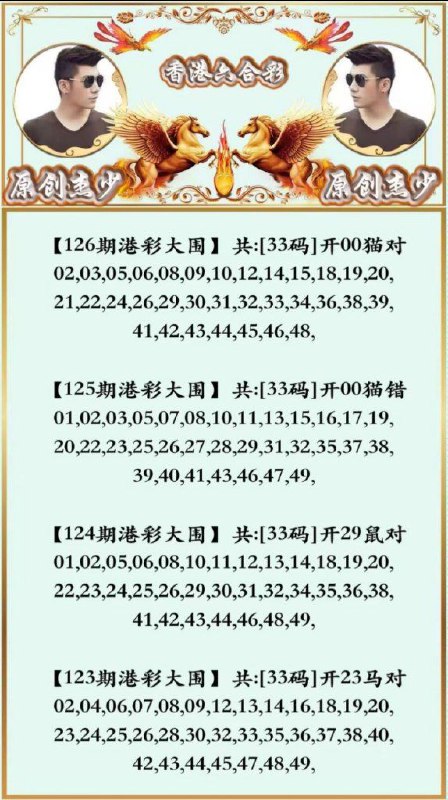 香港六合彩
原创杰少
原创杰少
【126期港彩大围】共:[33码]开00猫对
02,03,05,06,08,09,10,12,14,15,18,19,20,
21,22,24,26,29,30,31,32,33,34,36,38,39,
41,42,43,44,45,46,48,
【125期港彩大围】共:[33码]开00猫错
01,02,03,05,07,08,10,11,13,15,16,17,19,
20,22,23,25,26,27,28,29,31,32,35,37,38,
39,40,41,43,46,47,49,
【124期港彩大围】共:[33码]开29鼠对
01,02,05,06,08,10,11,12,13,14,18,19,20,
22,23,24,25,26,29,30,31,32,34,35,36,38,
41,42,43,44,46,48,49,
【123期港彩大围】共:[33码]开23马对
02,04,06,07,08,09,12,13,14,16,18,19,20,
23,24,25,26,28,30,32,33,35,36,37,38,40,
42,43,44,45,47,48,49,